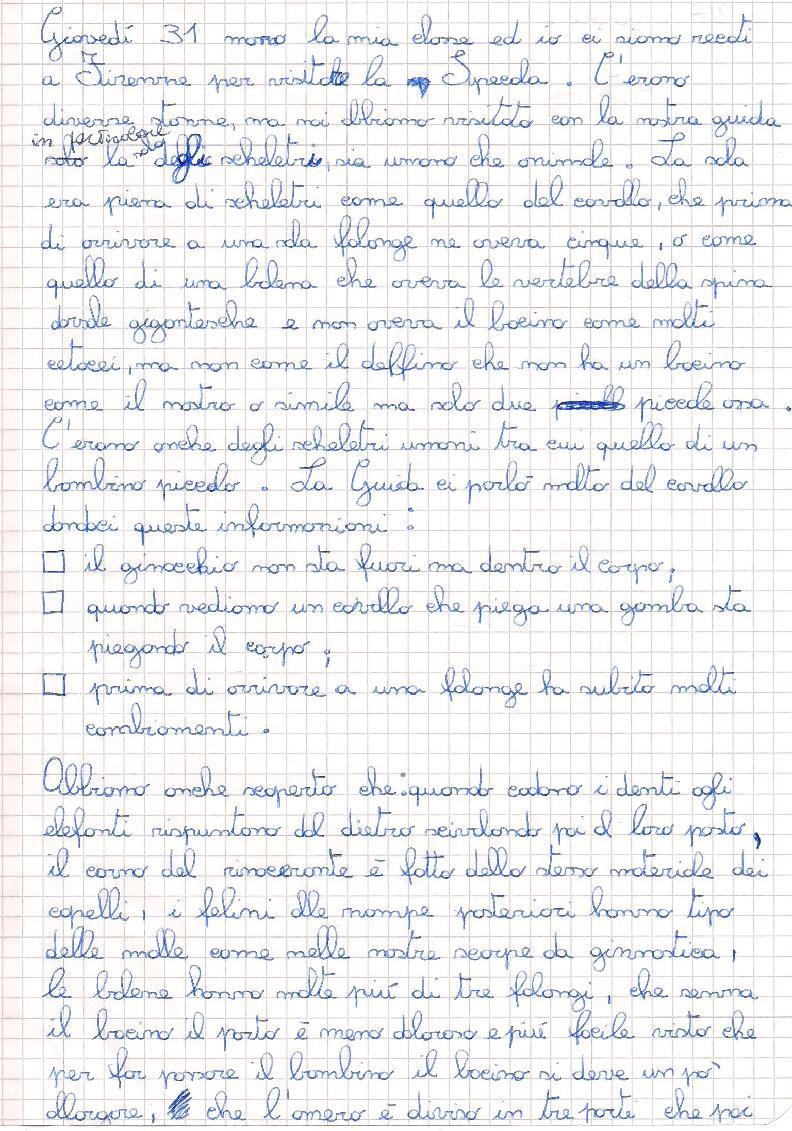 Giovedí 31 marzo la mia classe ed io ci siamo recati
a Firenze per visitare la Specola. C'erano
diverse stanze, ma noi abbiamo visitato con la nostra guida
in particolare la sala degli scheletri, sia umano che animale. La sala
era piena di scheletri come quello del cavallo, che prima
di arrivare a una sola falange ne aveva cinque, o come
quello di una balena che aveva le vertebre della spina
dorsale gigantesche e non aveva il bacino come molti
cetacei, ma non come il delfino che non ha un bacino
come il nostro o simile ma solo due piccole ossa.
C'erano anche degli scheletri umani tra cui quello di un
bambino piccolo. La Guida ci parlò molto del cavallo
dandoci queste informazioni:
□ il ginocchio non sta fuori ma dentro il corpo;
□ quando vediamo un cavallo che piega una gamba sta
piegando il corpo;
□ prima di arrivare a una falange ha subito molti
cambiamenti.
Abbiamo anche scoperto che: quando cadono i denti agli
elefanti rispuntano dal dietro scivolando poi al loro posto,
il corno del rinoceronte è fatto dello stesso materiale dei
capelli, i felini alle zampe posteriori hanno tipo
delle molle come nelle nostre scarpe da ginnastica,
le balene hanno molte piú di tre falangi, che senza
il bacino il parto è meno doloroso e piú facile visto che
per far passare il bambino il bacino si deve un po'
allargare, che l'omero è diviso in tre parti che poi